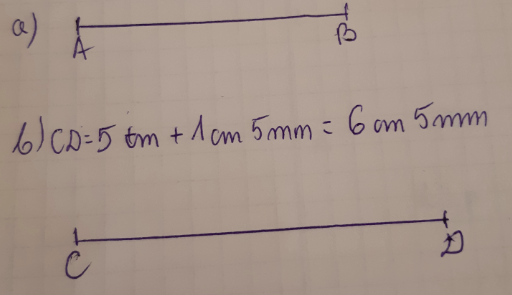 a)
A B
b) CD = 5 cm + 1 cm 5 mm = 6 cm 5 mm
C D